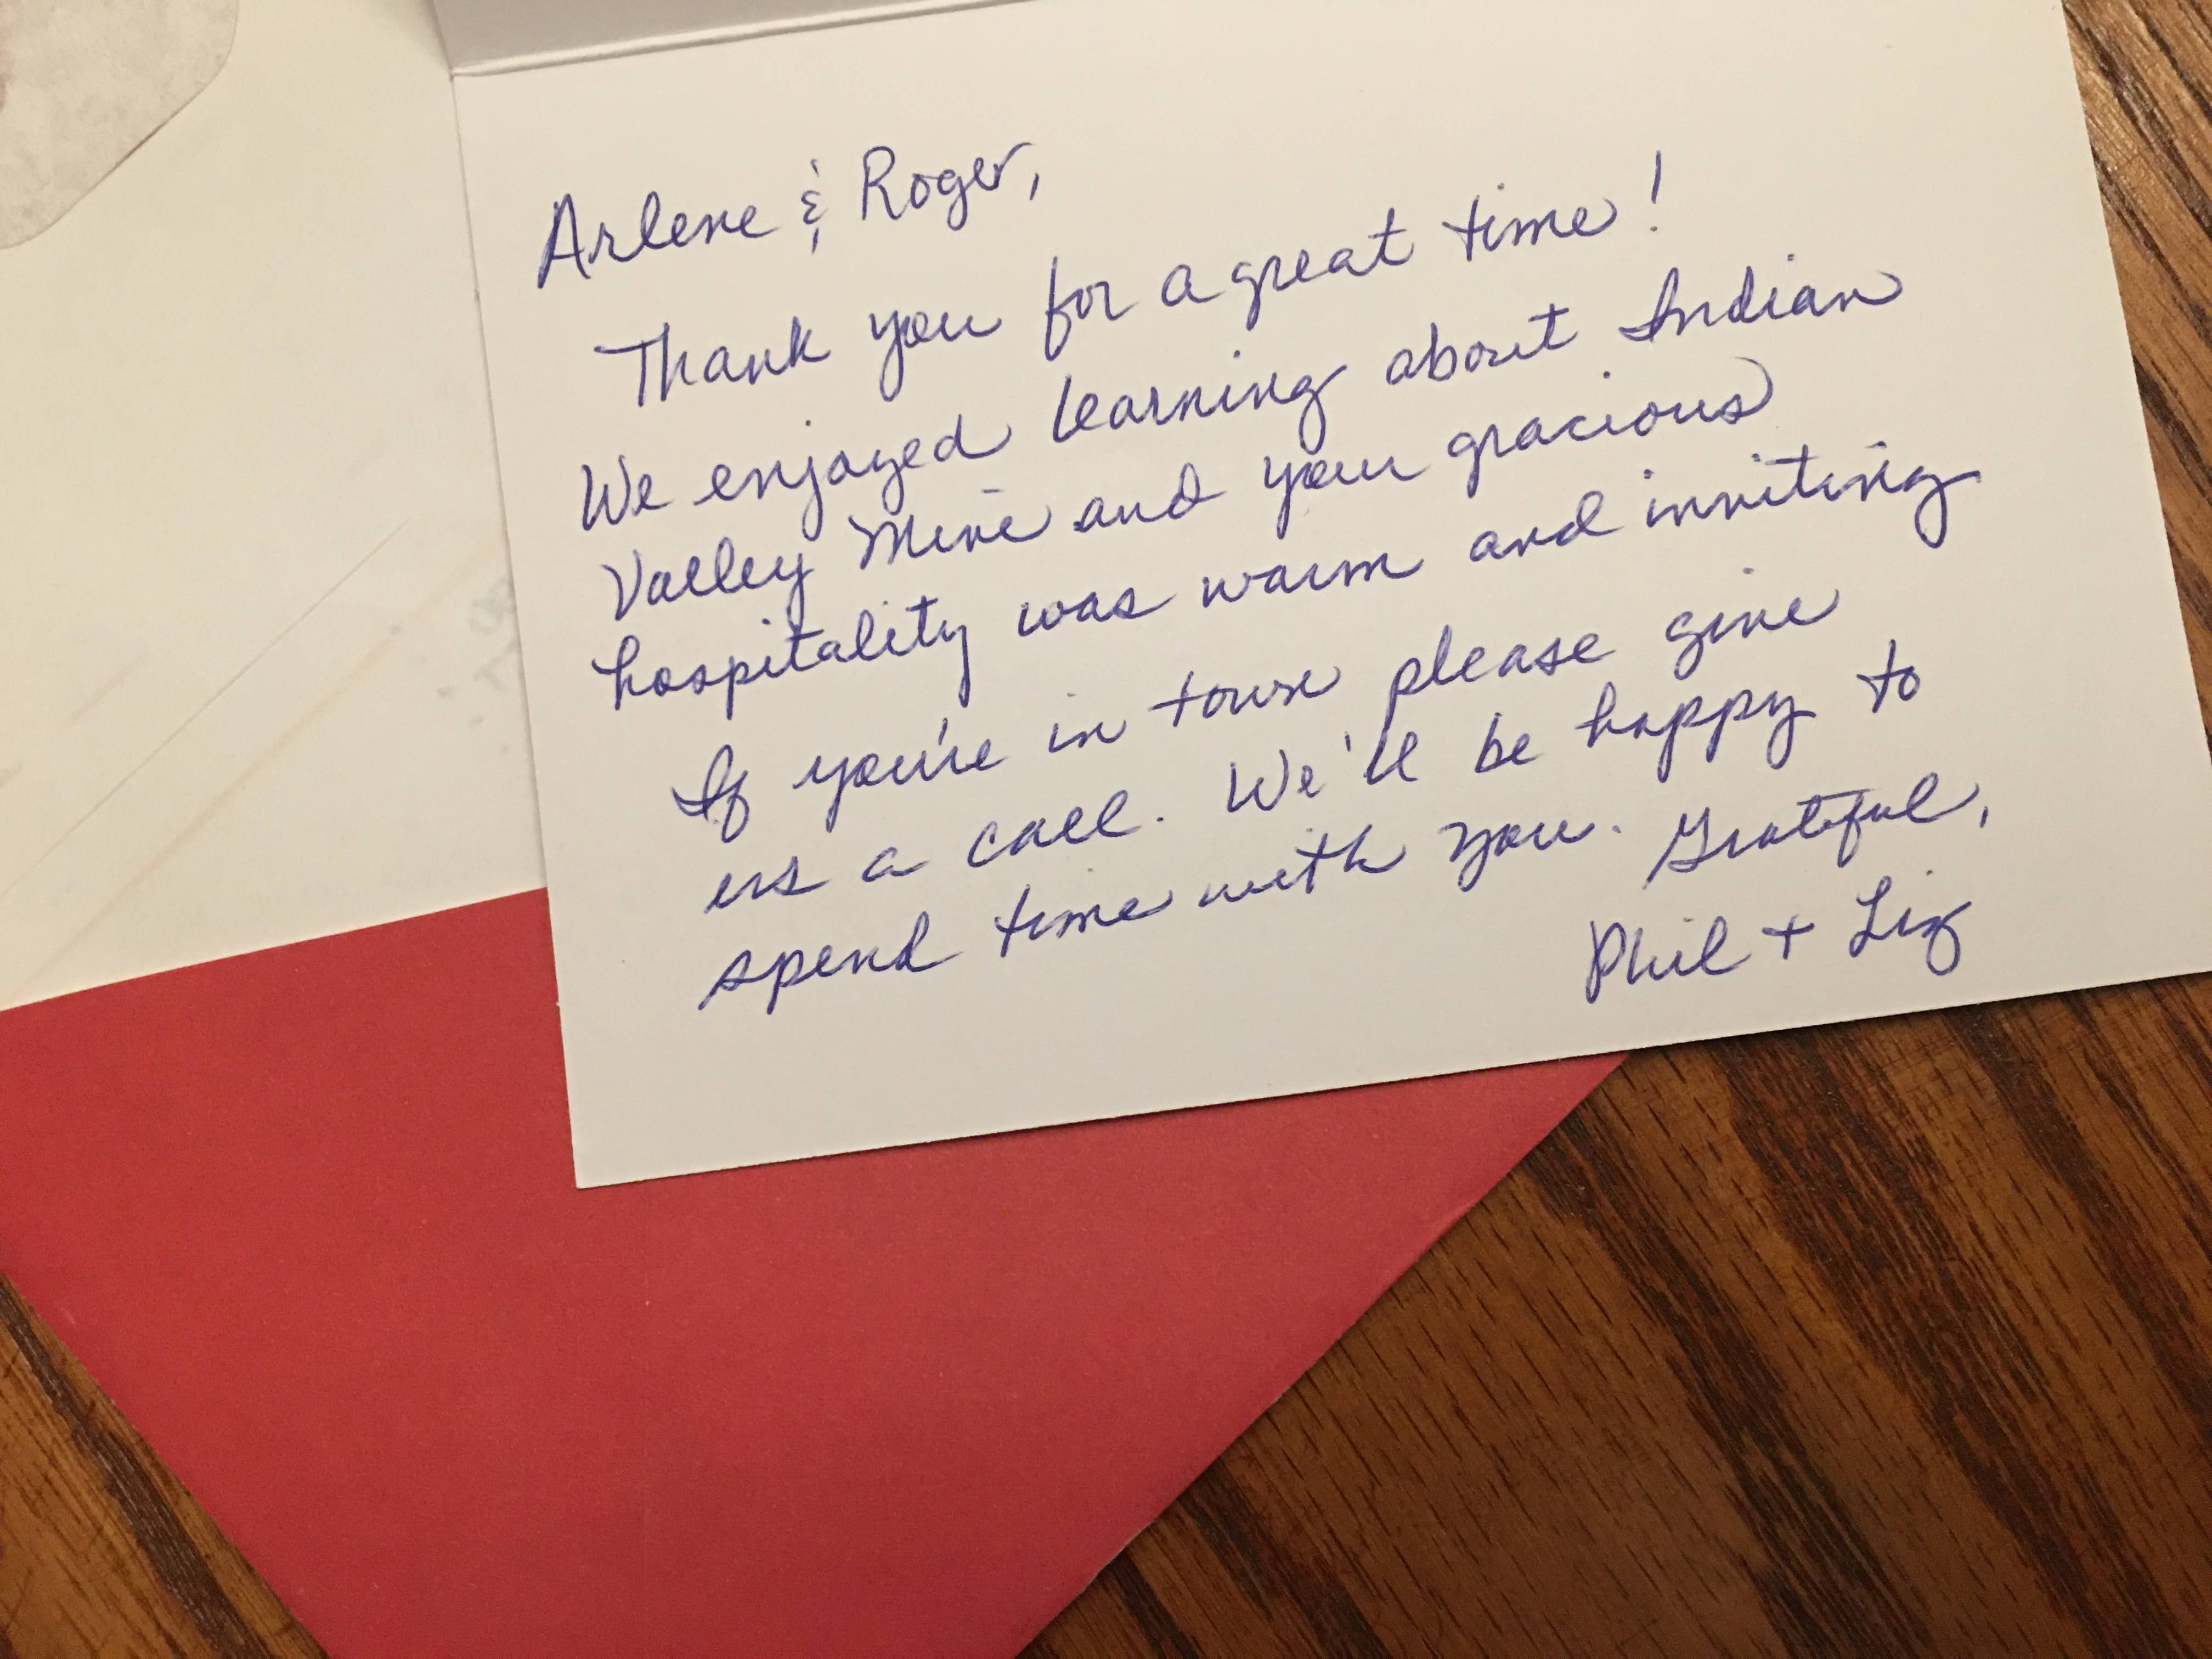 Arlene & Roger,
Thank you for a great time!
We enjoyed learning about Indian
Valley Mine and your gracious
hospitality was warm and inviting
If you're in town please give
us a call. We'll be happy to
spend time with you. Grateful,
Phil + Liz